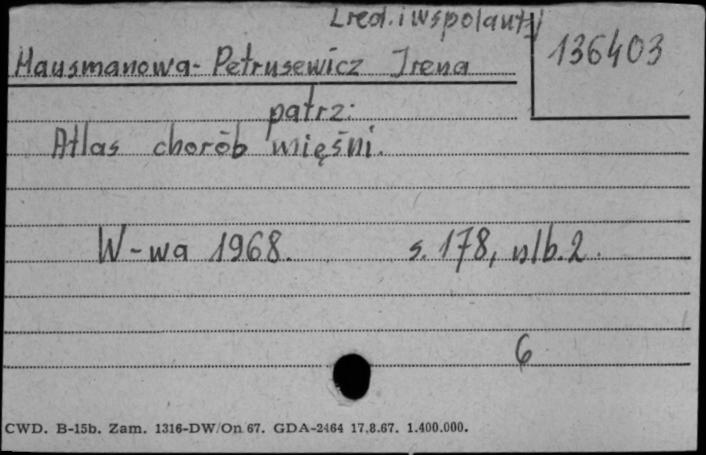 [red. i wspolaut]
136403
Hausmanowa-Petrusewicz Irena
patrz:
Atlas chorób mięśni.
W-wa 1968. s. 178, nlb. 2.
6
CWD. B-15b. Zam. 1316-DW/On 67. GDA-2464 17.8.67. 1.400.000.